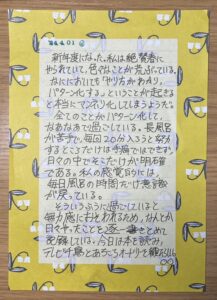 新年度になった。私は絶賛春に
やられていて、色々なことが荒ぶれている。
なににおいても「やり方がわかり、
パターン化する」ということが起きる
と本当にマンネリ化してしまうような。
全てのことがパターン化して、
なあなあで過ごしている。長風呂
が苦手で、毎回20分入ろうと努力
するところだけは平庸ではできず、
日々の中でそこだけが明確
である。私の感覚的には、
毎日風呂の時間だけ意識
が戻っている。
そういうふうに過ごしていると
無力感におそわれるため、なんとか
日々やったことを逐一まとめて
記録している。今日は本を読み、
テレビ千鳥とあちこちオードリーを観